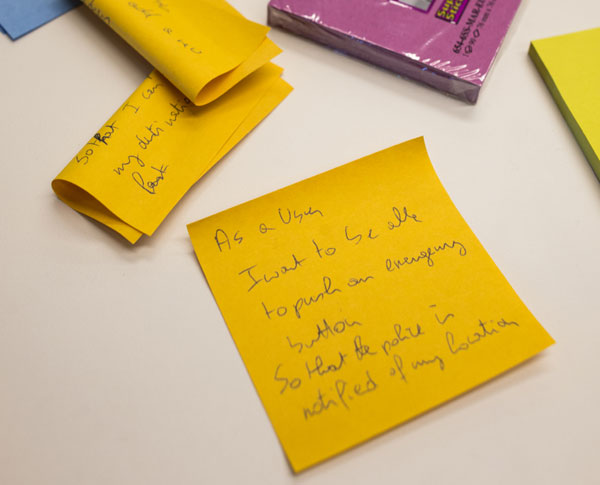 add a new
So that I can
my destination
fast
As a User
I want to be able
to push an emergency
button
So that the police is
notified of my location
Super
Sticky